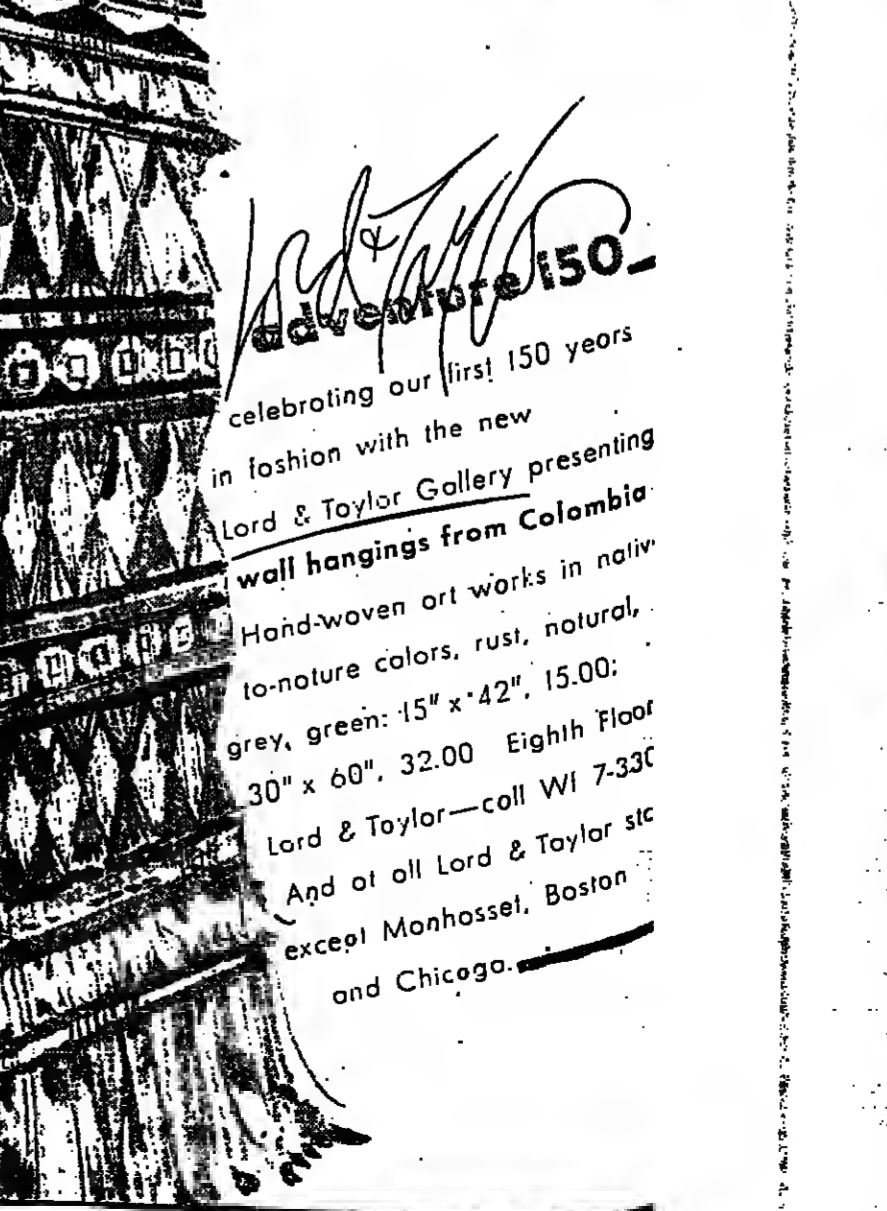 Lord & Taylor
adventure 150
celebrating our first 150 years
in fashion with the new
Lord & Taylor Gallery presenting
wall hangings from Colombia
Hand-woven art works in nativ
to-nature colors, rust, natural,
grey, green: 15" x 42", 15.00;
30" x 60", 32.00 Eighth Floor
Lord & Taylor—call WI 7-330
And at all Lord & Taylor sto
except Manhasset, Boston
and Chicago.